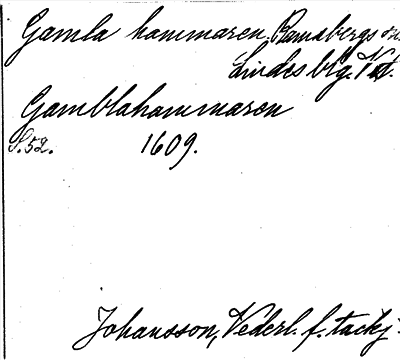 Gamla hammaren Ramsbergs sn.
Lindes blg. Vstm.
Gamblahammaren
S. 52. 1609.
Johansson, Vederl. f. tackj.